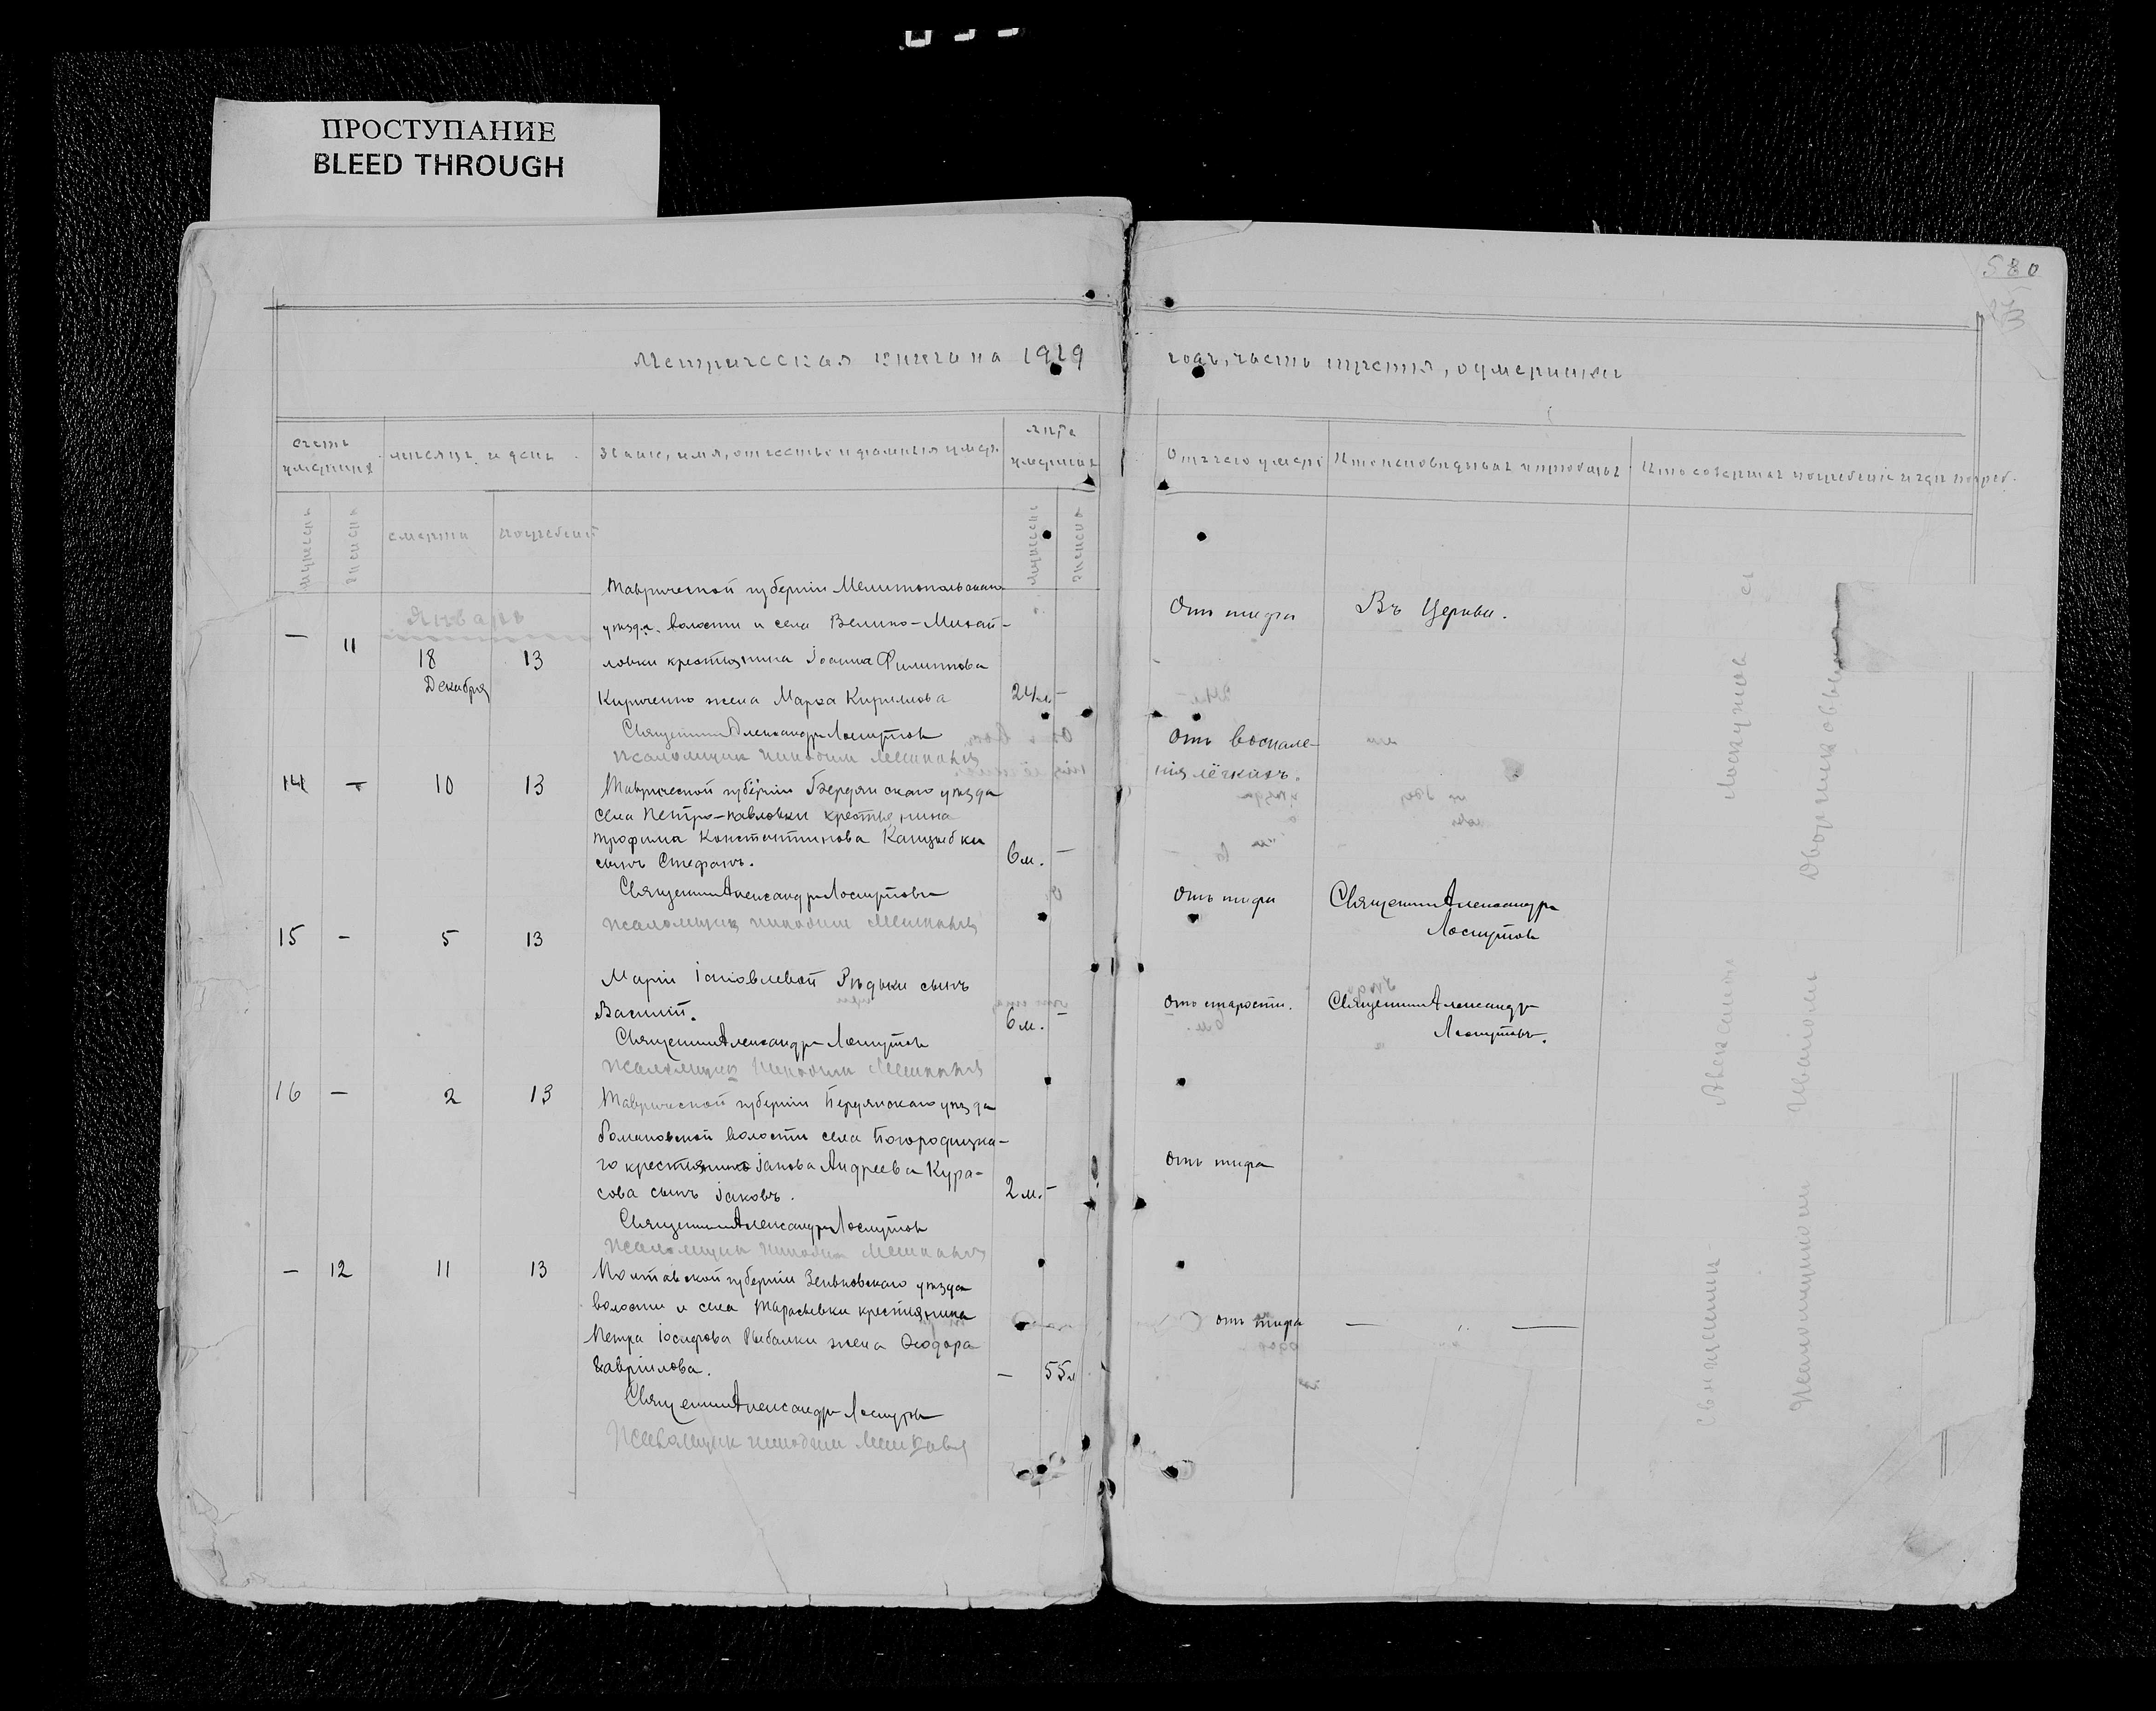 ПРОСТУПАНИЕ
BLEED THROUGH
580
Метрическая книга на 1919
годъ, часть третья, о умершихъ
счетъ умершихъ
мѣсяцъ и день
званіе, имя, отчество и фамилія умер.
лѣта умершихъ
Отъ чего умеръ
Кто исповѣдывалъ и пріобщалъ
Кто совершалъ погребеніе и гдѣ погреб.
мужескъ
женска
смерти
погребенія
мужескъ
женска
Январь
— 11 18 Декабря 13
Таврической губерніи Мелитопольскаго
уѣзда волости и села Велико-Михай-
ловки крестьянина Іоанна Филиппова
Кириченко жена Марѳа Кириллова
24л. —
Священникъ Александръ Лоскутовъ
Псаломщикъ
Отъ тифа
Въ Церкви.
14 — 10 13
Таврической губерніи Бердянскаго уѣзда
села Петро-павловки крестьянина
Трофима Константинова
сынъ Стефанъ.
6м. —
Священникъ Александръ Лоскутовъ
Псаломщикъ
отъ воспале-
нія лёгкихъ.
15 — 5 13
Маріи Іаковлевой Рѣдьки сынъ
Василій.
6м. —
Священникъ Александръ Лоскутовъ
Псаломщикъ
отъ тифа
Священникъ Александръ
Лоскутовъ
16 — 2 13
Таврической губерніи Бердянскаго уѣзда
волости села Богородицка-
го крестьянина Іакова Андреева Кура-
сова сынъ Іаковъ.
2м. —
Священникъ Александръ Лоскутовъ
Псаломщикъ
отъ старости.
Священникъ Александръ
Лоскутовъ.
отъ тифа
— 12 11 13
Полтавской губерніи Зеньковскаго уѣзда
волости и села Тарасьевки крестьянина
Петра Іосифова Рыбалки жена Ѳеодора
Гавріилова.
— 55л
Священникъ Александръ Лоскутовъ
Псаломщикъ
отъ тифа — —
Священникъ Александръ Лоскутовъ съ
Псаломщикомъ